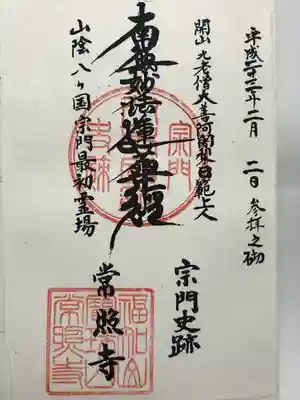 平成二十三年二月 二日 参拝之砌
開山 九老僧大善阿闍梨日範上人
南無妙法蓮華経
山陰八ヶ国宗門最初霊場
宗門史跡
常照寺
宗門
史跡
常照寺